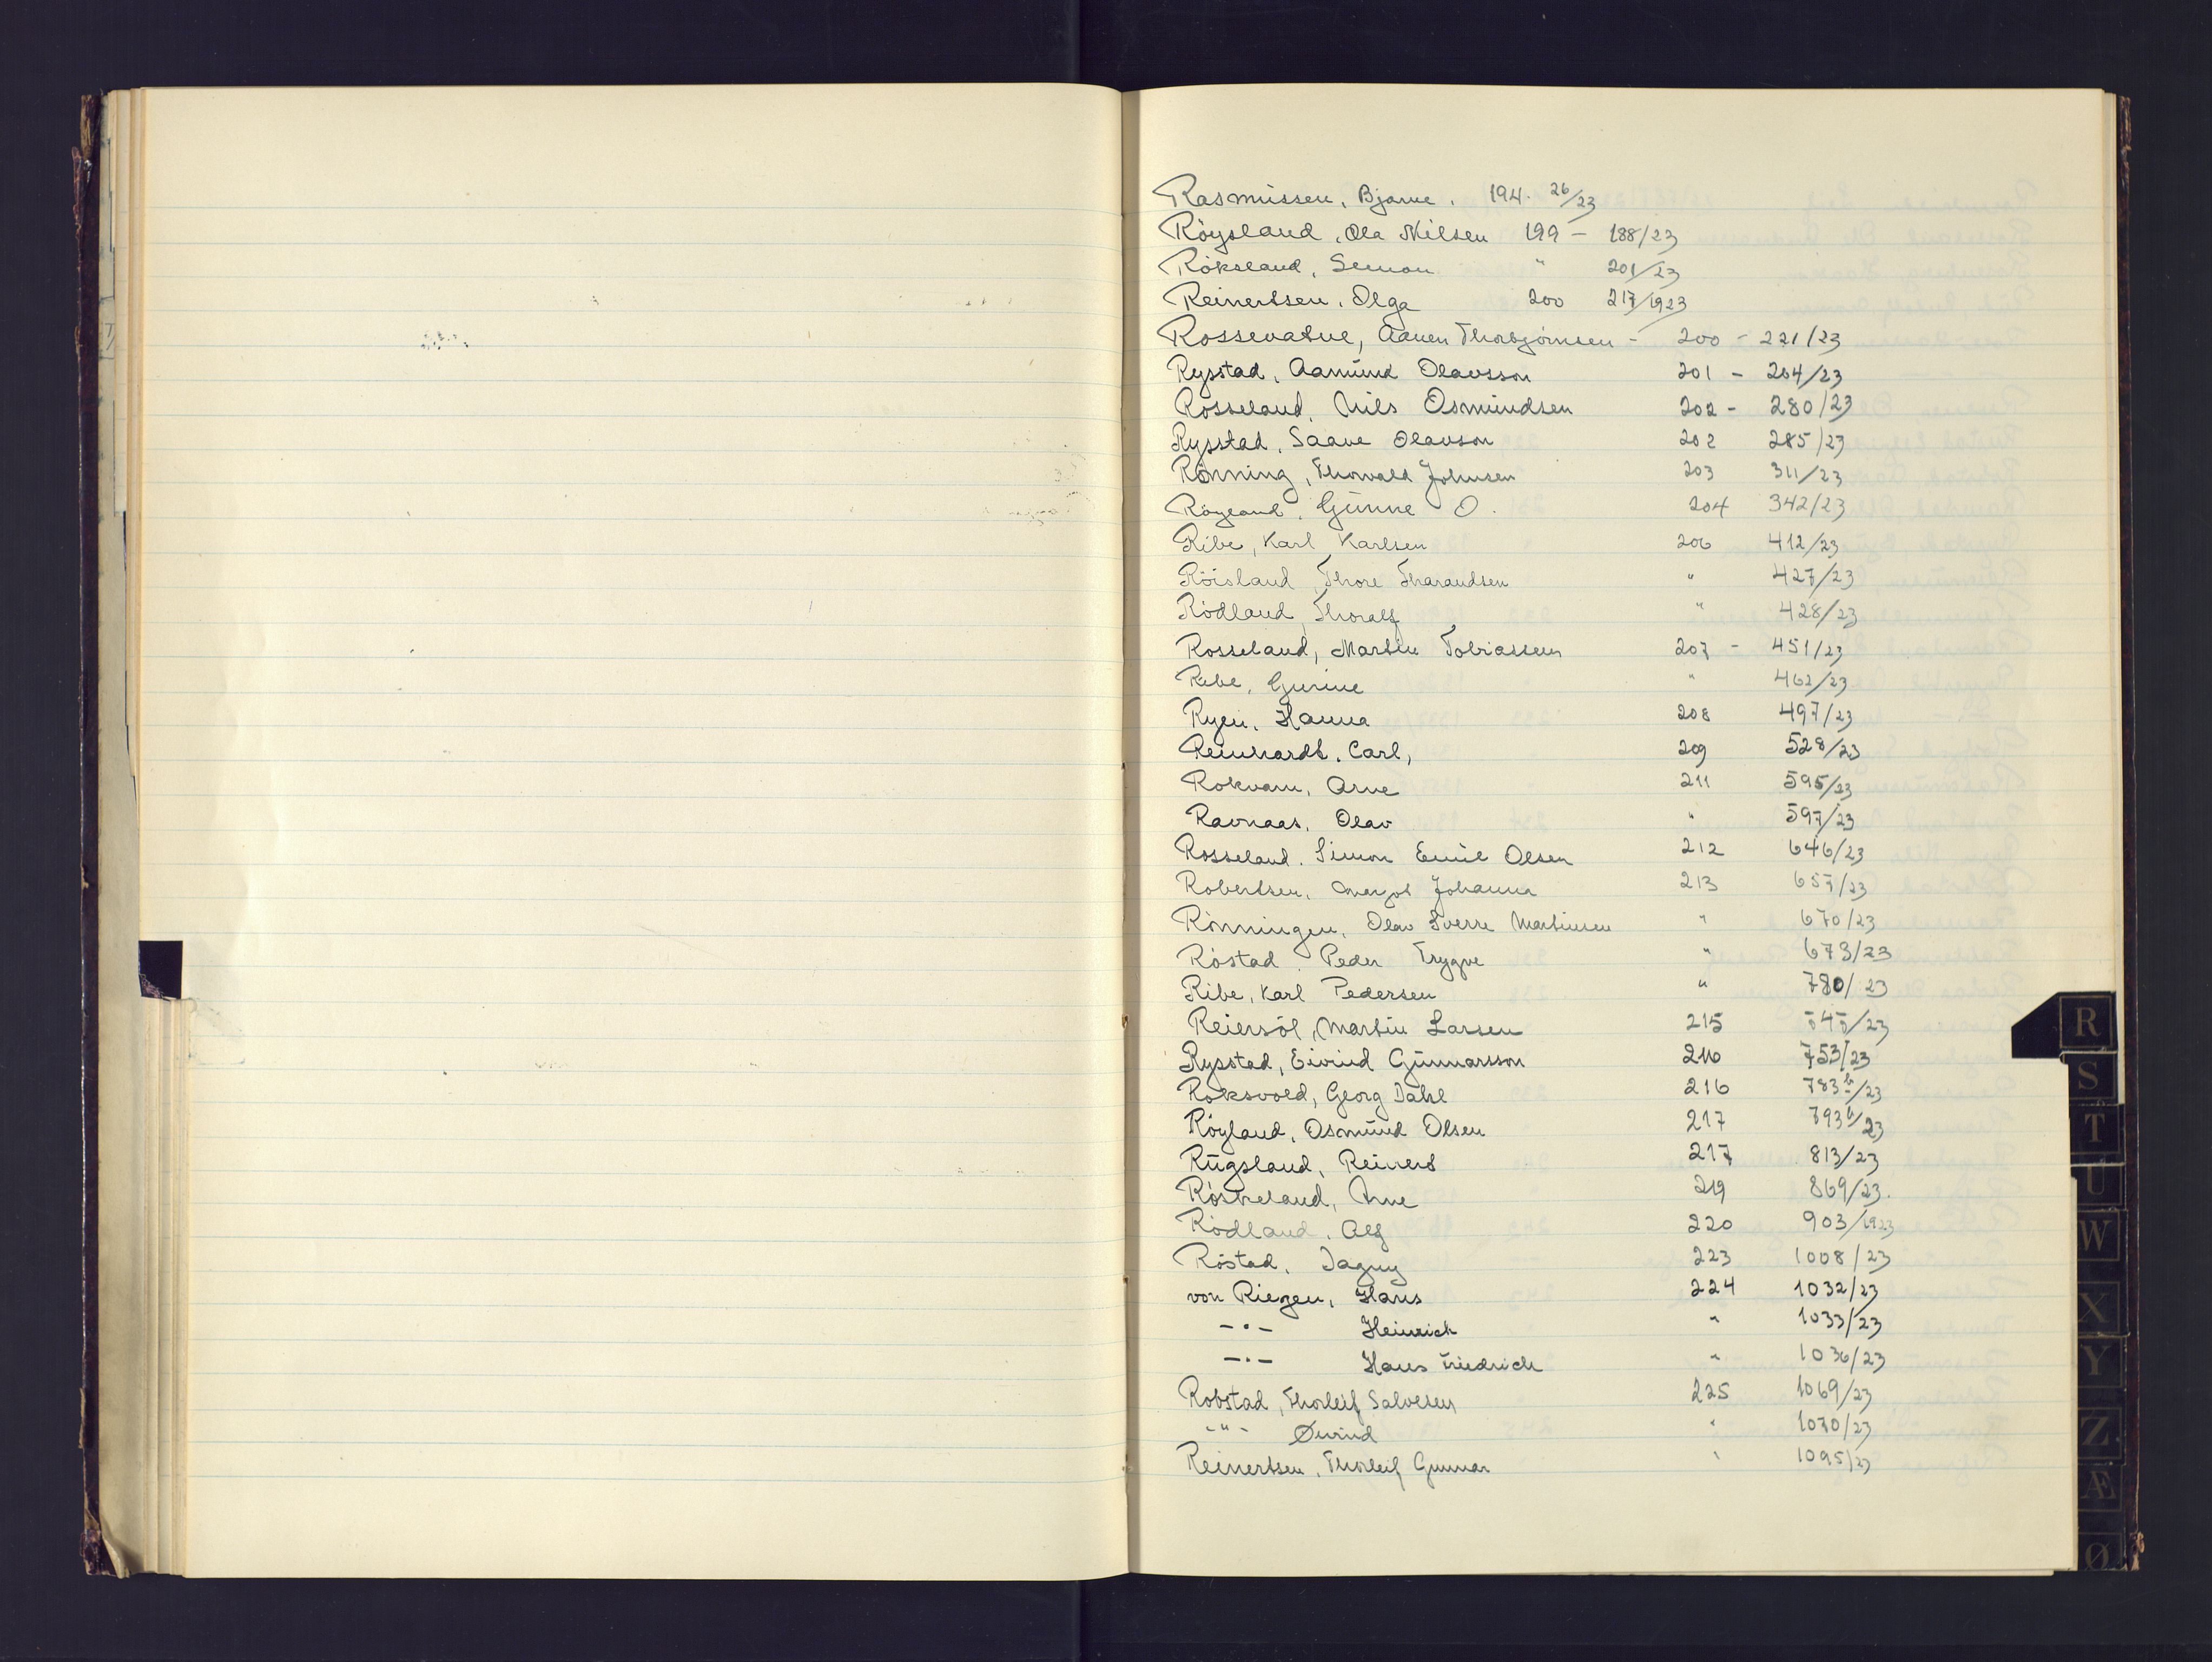 Rasmussen, Bjarne. 194. 26/23
Röysland, Ola Nilsen 199 - 188/23
Röksland, Simon " 201/23
Reinertsen, Olga 200 217/1923
Rossevatne, Aanen Thorbjörnsen - 200 - 221/23
Rysstad, Aamund Olavsson 201 - 264/23
Rosseland, Nils Osmundsen 202 - 280/23
Rysstad, Saave Olavson 202 285/23
Rönning, Thorvald Johnsen 203 311/23
Röyland, Gunne O. 204 342/23
Ribe, Karl Karlsen 206 412/23
Röisland, Thore Tharandsen " 427/23
Rödland, Thoralf " 428/23
Rosseland, Martin Tobiassen 207 - 451/23
Ribe, Gurine " 462/23
Ryen, Hanna 208 497/23
Reinhardt, Carl, 209 528/23
Rokvam, Arne 211 595/23
Ravnaas, Olav " 597/23
Rosseland, Simon Emil Olsen 212 646/23
Robertsen, Margot Johanna 213 657/23
Rönningen, Olav Sverre Martinsen " 670/23
Röstad, Peder Trygve " 673/23
Ribe, Karl Pedersen " 780/23
Reiersöl, Martin Larsen 215 /23
Rysstad, Eivind Gunnarsson 216 753/23
Roksvold, Georg Dahl 216 783 b/23
Röyland, Osmund Olsen 217 793 b/23
Rugsland, Reinert 217 813/23
Röskeland, Arne 219 869/23.
Rödland, Alf 220 903/1923
Röstad, Dagny 223 1008/23
von Riegen, Hans 224 1032/23
-"- Heinrich " 1033/23
-"- Hans Friedrich " 1036/23
Robstad, Thorleif Salvesen 225 1069/23
-"- Øivind " 1070/23
Reinertsen, Thorleif Gunnar " 1095/23
R
S
T
U
W
X
Y
Z
Æ
Ø